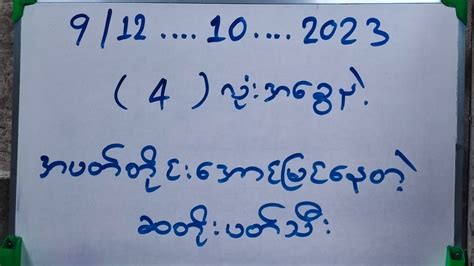 9/12....10....2023
( 4 ) လုံးအခွေနဲ့
အပတ်တိုင်းအောင်မြင်နေတဲ့
ဆတိုးပတ်သီး